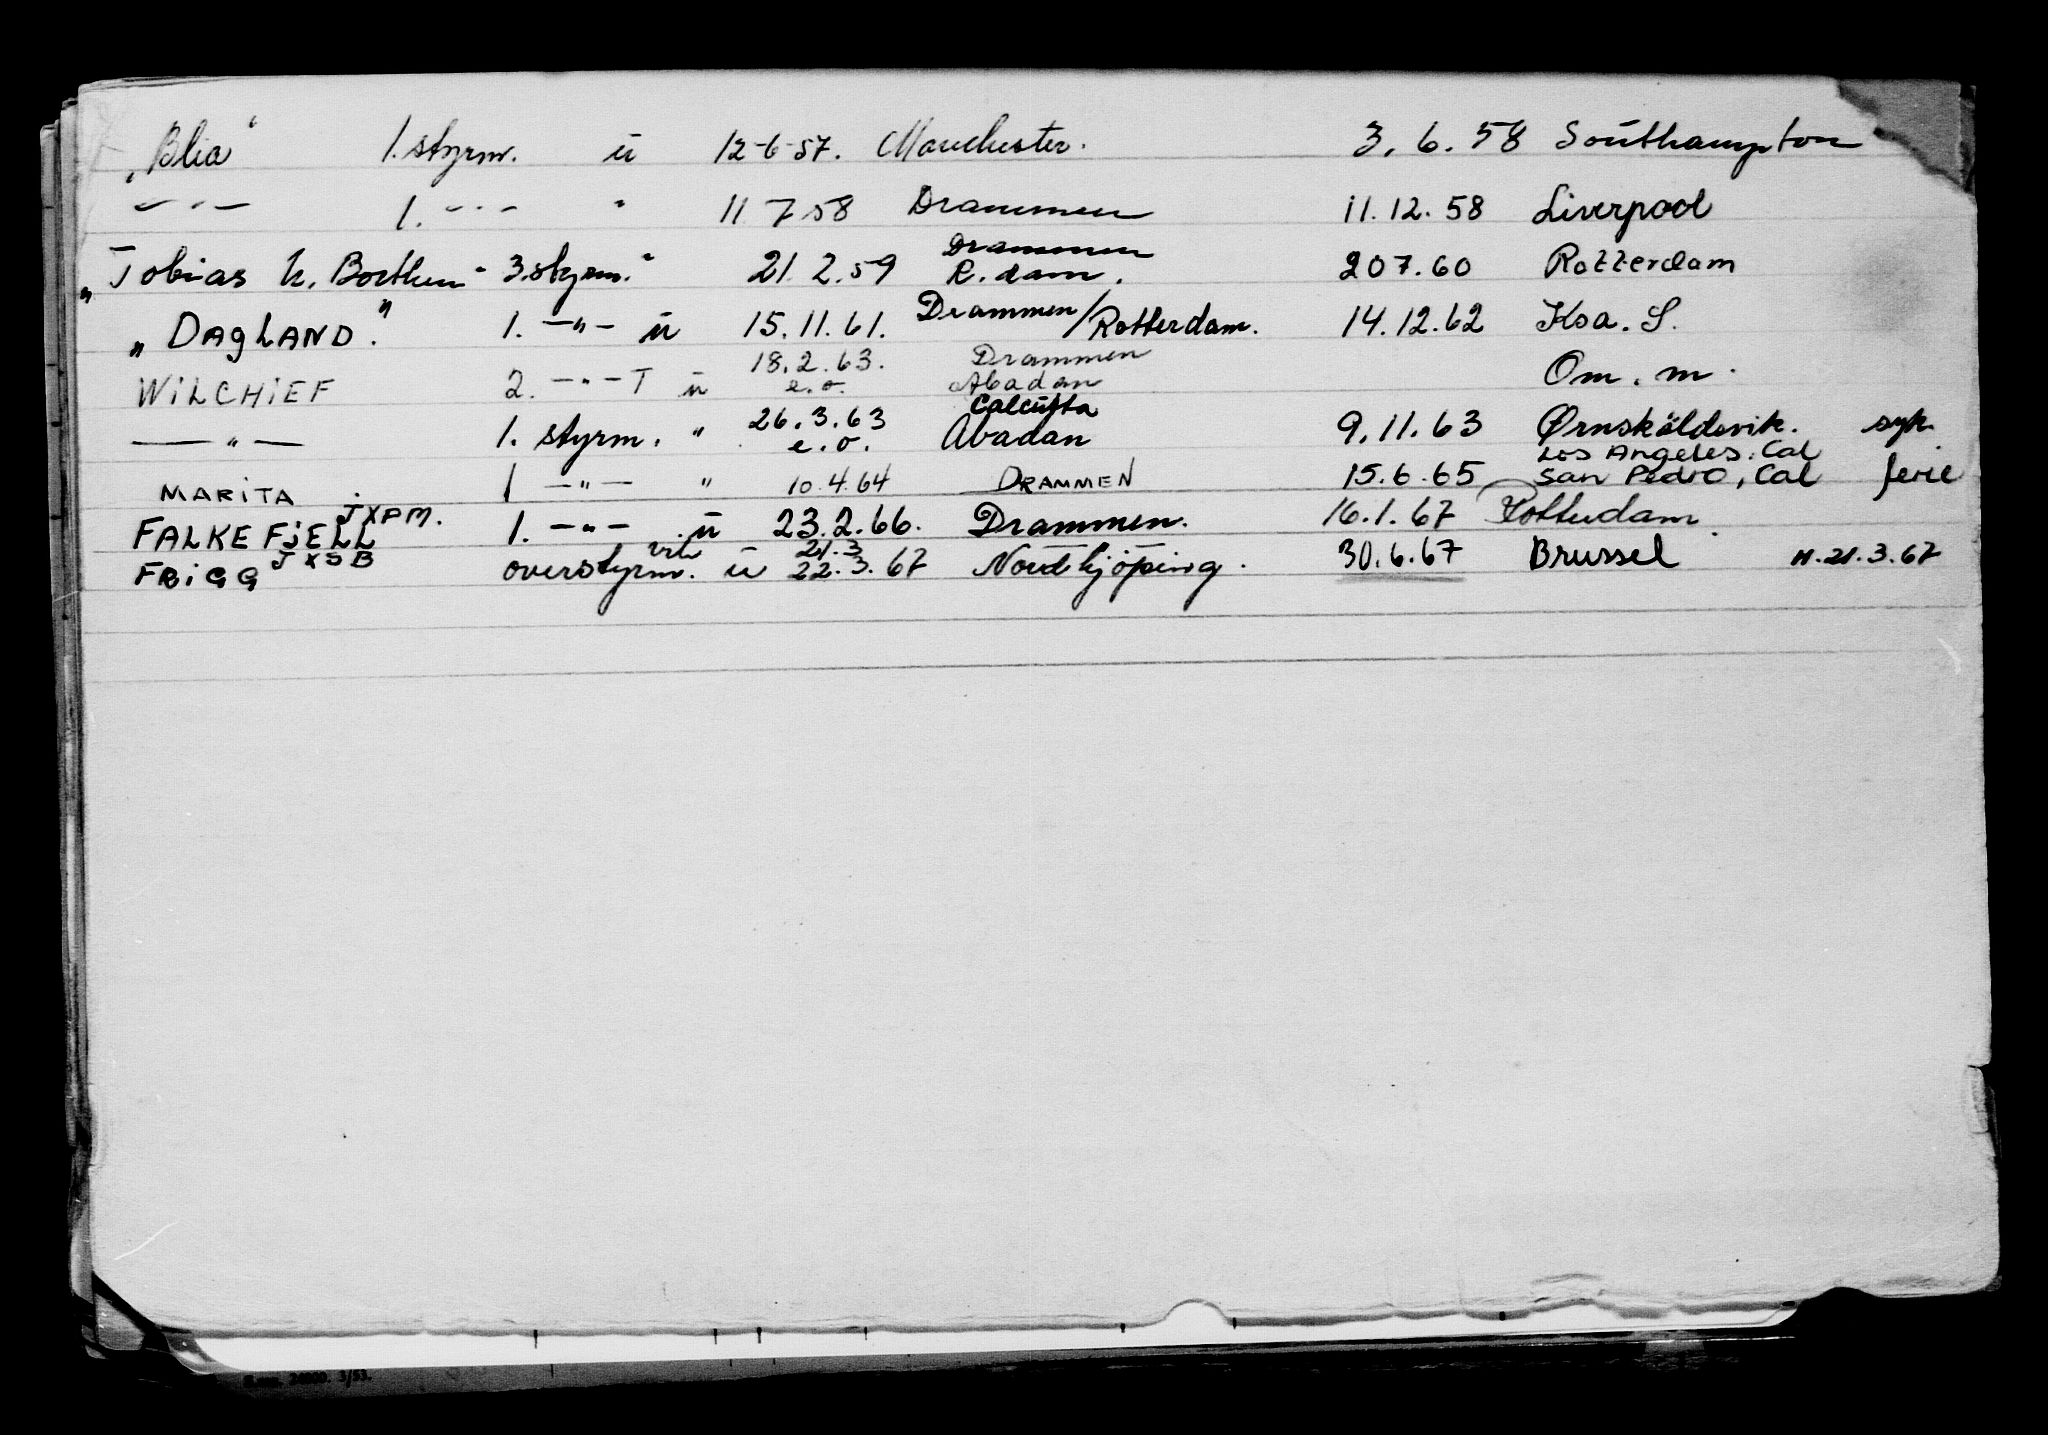 „Blia" 1. styrm. ü 12-6-57. Manchester. 3. 6. 58 Southampton
— " — 1. — " — " 11 7 58 Drammen 11. 12. 58 Liverpool
Drammen
„Tobias U. Borthen" 3. styrm. " 21. 2. 59 R.dam. 20 7. 60 Rotterdam
„DAGLAND." 1. — " — ü 15. 11. 61. Drammen/Rotterdam. 14. 12. 62 Koa. S.
18. 2. 63. Drammen
WILCHIEF 2. — " — T ü e. o. Abadan Om. m.
26. 3. 63 Calcutta
— " — 1. styrm. " e. o. Abadan 9. 11. 63 Ørnsköldsvik. syk.
Los Angeles. Cal
MARITA 1 — " — " 10. 4. 64 DRAMMEN 15. 6. 65 San Pedro, Cal ferie
JXPM.
FALKEFJELL 1. — " — ü 23. 2. 66. Drammen. 16. 1. 67 Rotterdam.
JXSB 21. 3
FRIGG overstyrm. ü 22. 3. 67 Nordkjöping. 30. 6. 67 Brussel H. 21. 3. 67
3/53.